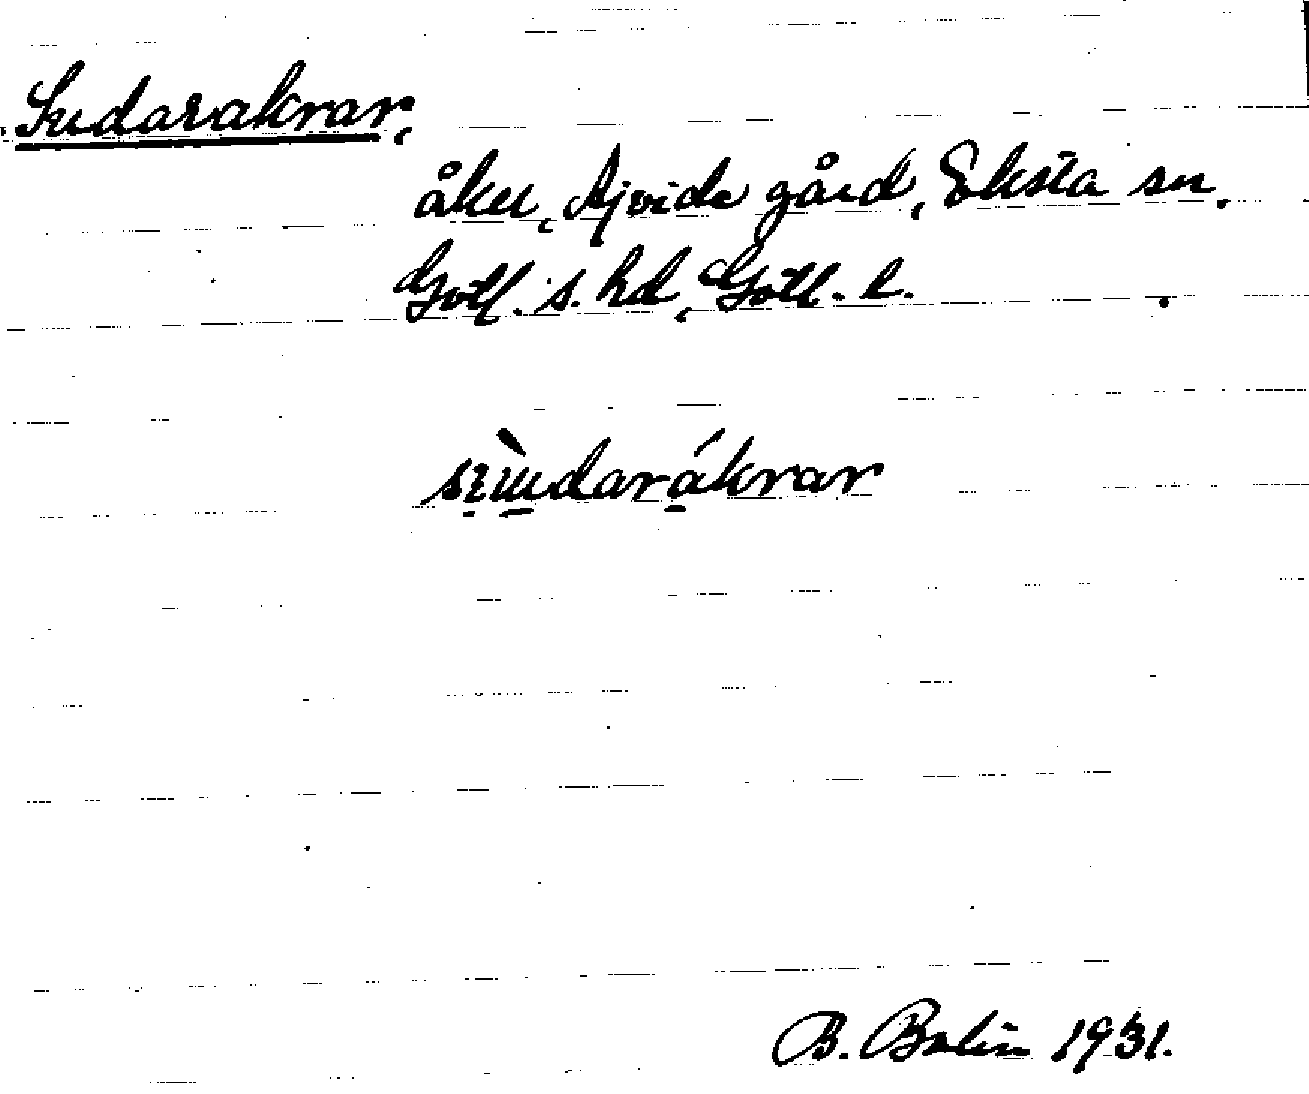 Sudarakrar,
åker, Ajvide gård, Eksta sn.
Gotl. s. hd, Gotl. l.
B. Bolin 1931.